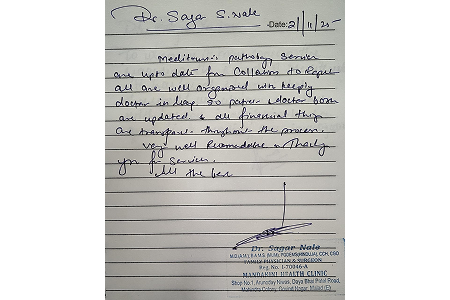 Dr. Sagar S. Nale
-Date: 2/11/25-
pathology service
are upto date from Collection to Report
all are well organized with keeping
doctor in loop so patient & doctor both
are updated & all financial things
are transparent throughout the process.
Very well Recomendable & Thank
you for service.
All the best
Dr. Sagar Nale
FAMILY PHYSICIAN & SURGEON
Reg. No. I-70046-A
MANDAKINI HEALTH CLINIC
Shop No.1, Arunoday Niwas, Daya Bhai Patel Road,
Mahindra Colony, Govind Nagar, Malad (E),